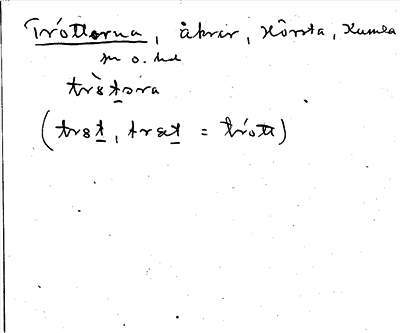 Tróttorna, åkrar, Körsta, Kumla
sn o. hd
trètora
(tret, træt = trött)